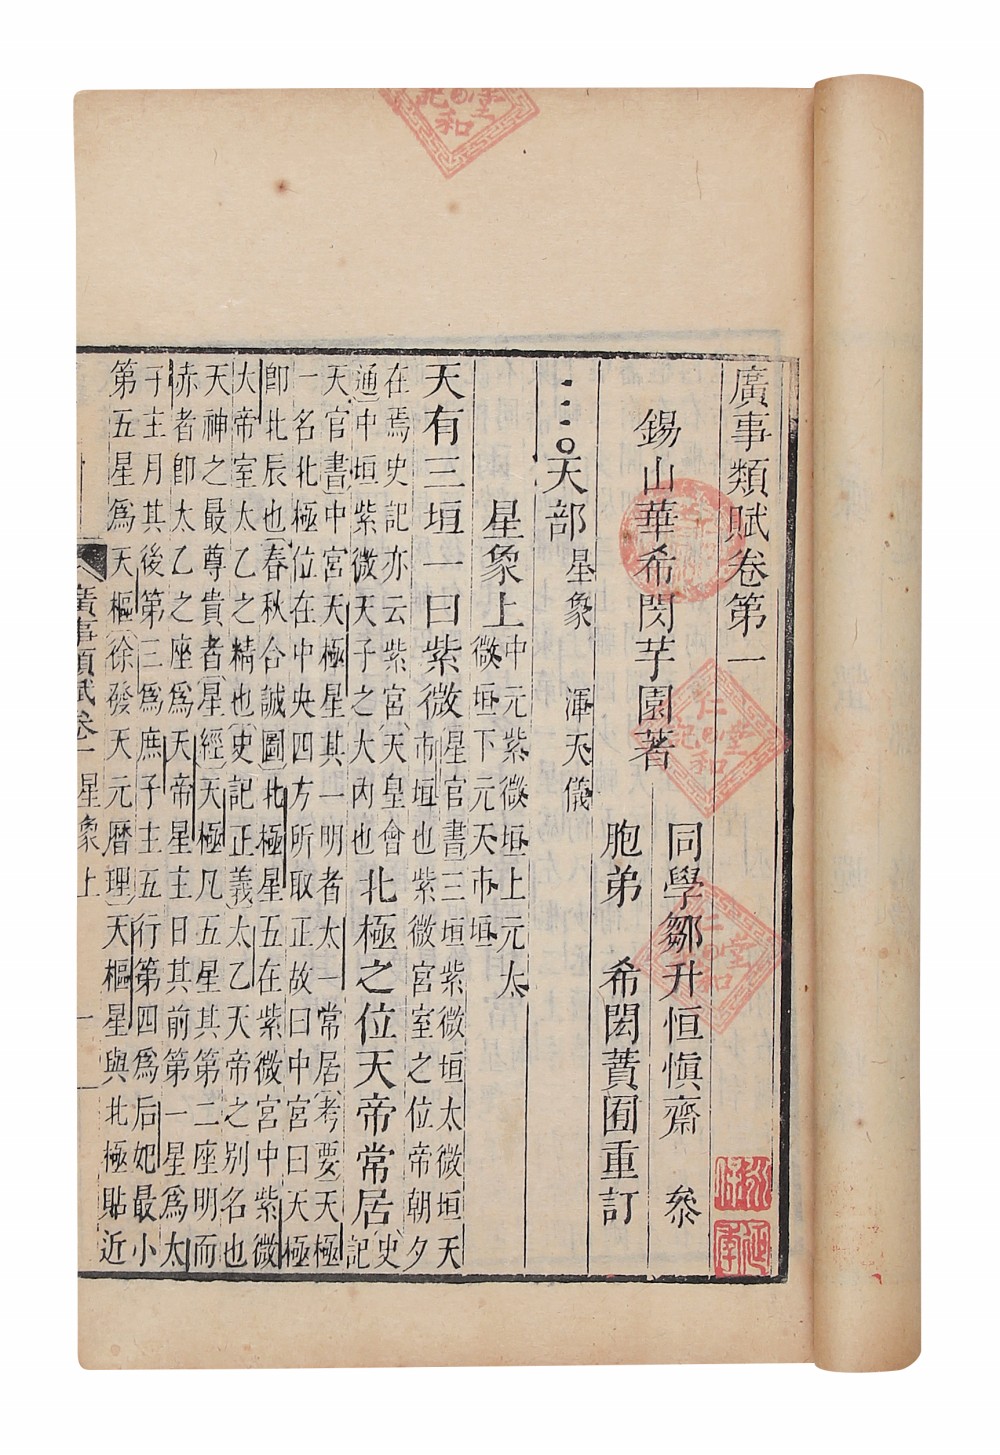 廣事類賦卷第一
錫山華希閔芋園著
同學鄒升恒慎齋 叅
胞弟 希閎蕡園重訂
天部 星象 渾天儀
星象上 中元紫微垣上元太
微垣下元天市垣
天有三垣一曰紫微 星官書三垣紫微垣太微垣天
市垣也紫微宮室之位帝朝夕
在焉史記亦云紫宮天皇會
通中垣紫微天子之大內也 北極之位天帝常居 史
記
天官書中宮天極星其一明者太一常居考要天極
一名北極位在中央四方所取正故曰中宮曰天極
卽北辰也春秋合誠圖北極星五在紫微宮中紫微
大帝室太乙之精也史記正義太乙天帝之別名也
天神之最尊貴者星經天極凡五星其第二座明而
赤者卽太乙之座爲天帝星主日其前第一星爲太
子主月其後第三爲庶子主五行第四爲后妃最小
第五星爲天樞徐發天元曆理天樞星與北極貼近
廣事類賦卷一 星象上 一
仁堂
和記
仁堂
和記
堂
和記